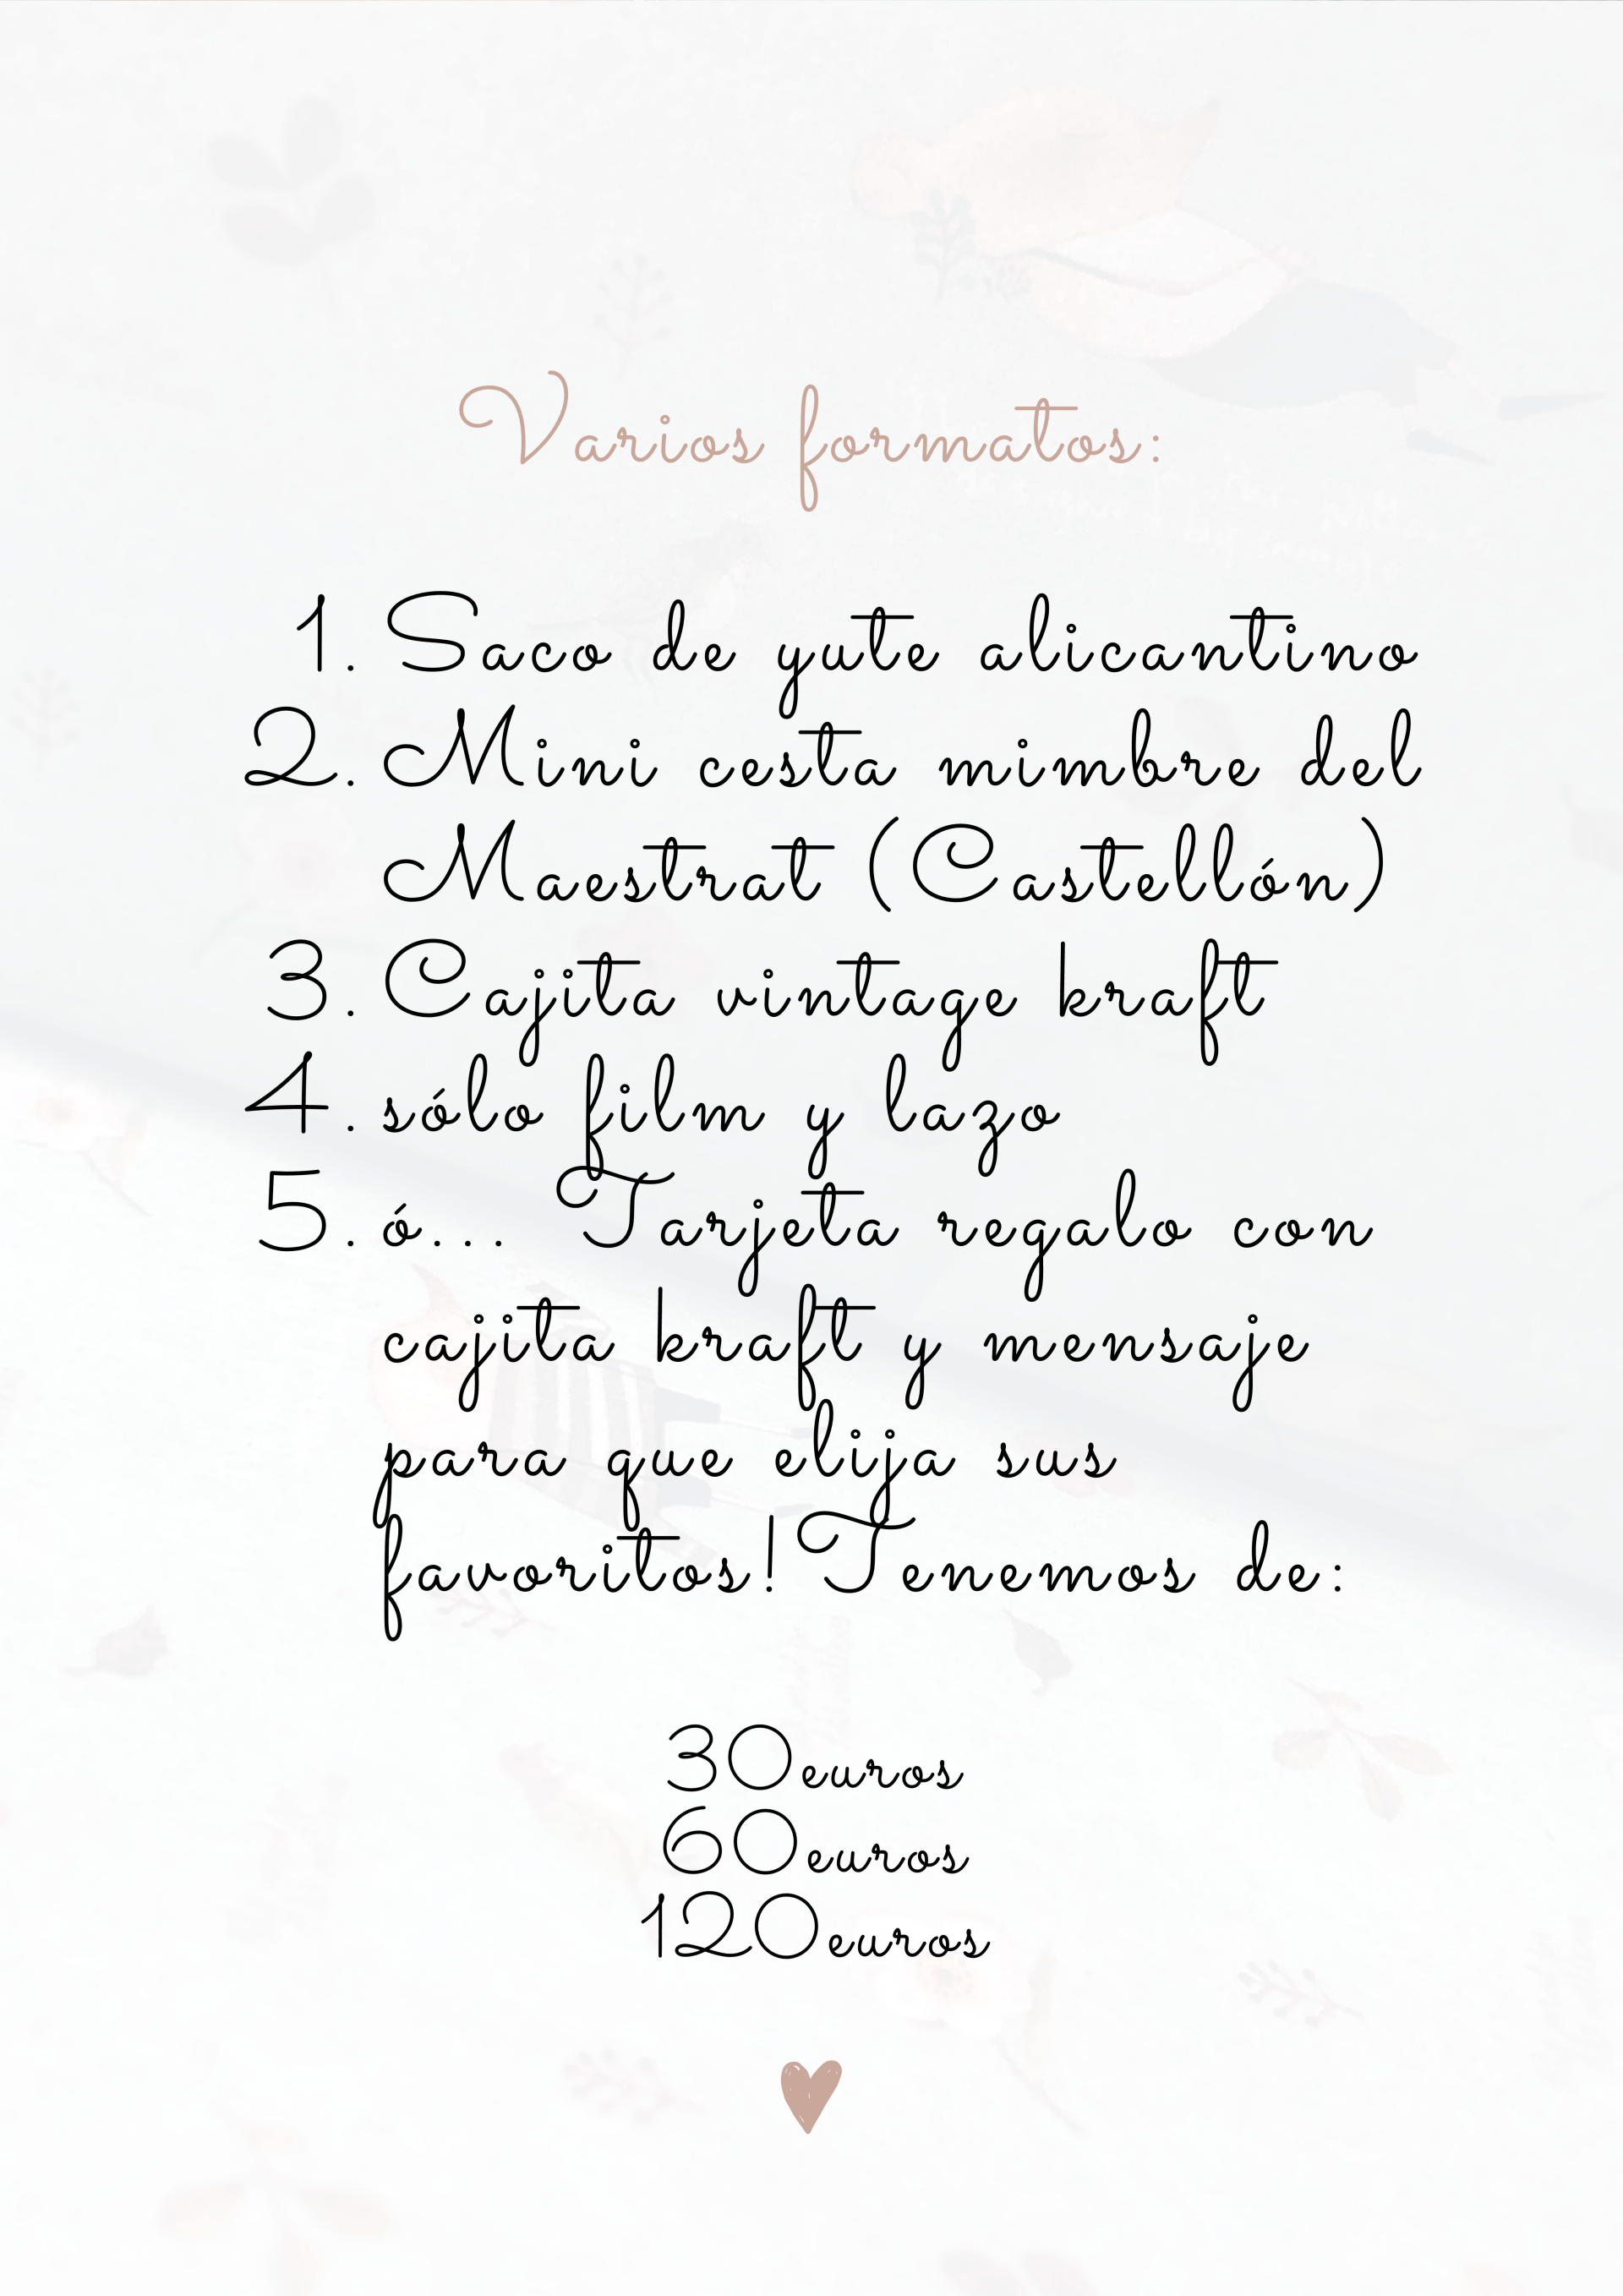 Varios formatos:
1. Saco de yute alicantino
2. Mini cesta mimbre del
Maestrat (Castellón)
3. Cajita vintage kraft
4. sólo film y lazo
5. ó... Tarjeta regalo con
cajita kraft y mensaje
para que elija sus
favoritos! Tenemos de:
30euros
60euros
120euros